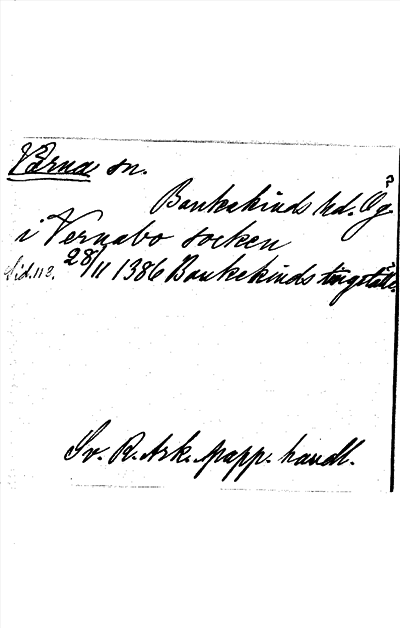 Värna sn.
Bankekinds hd. Ög
i Vernabo socken
Vid. 112. 28/11 1386 Bankekinds tingställe.
Sv. R. Ark. papp. handl.